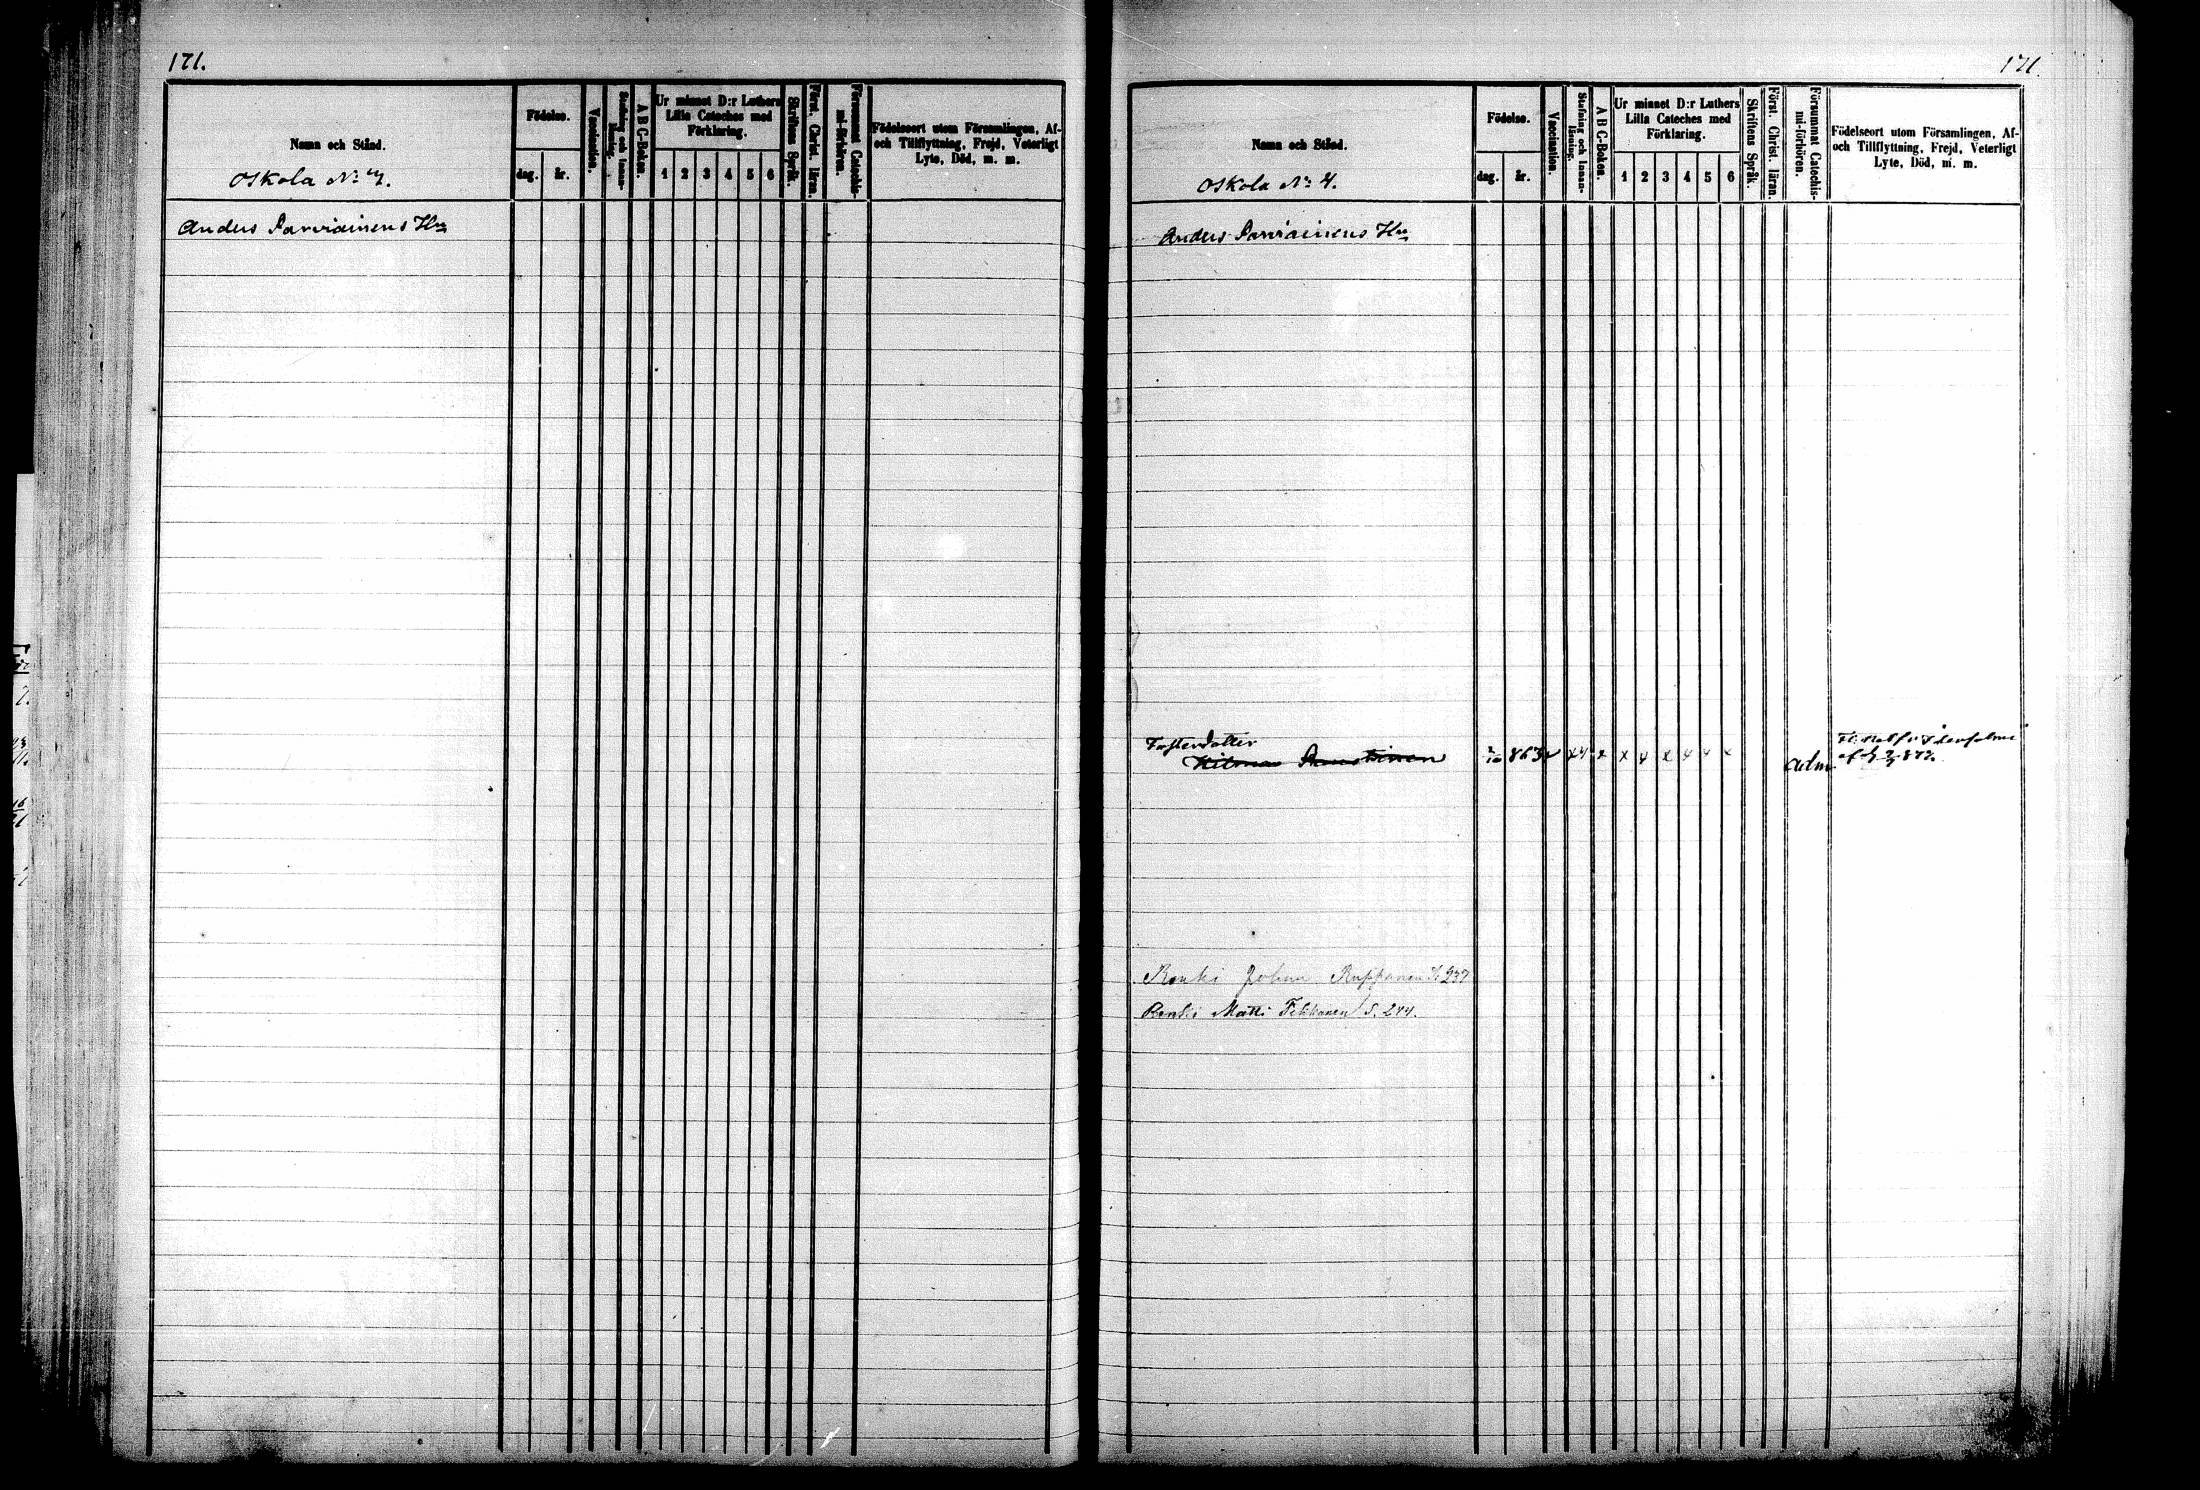 171.
Namn och Stånd.
Oskola No 4.
Födelse.
dag. år.
Vaccination.
Stafning och Innan-läsning.
A B C-Boken.
Ur minnet D:r Luthers
Lilla Cateches med
Förklaring.
1 2 3 4 5 6
Skriftens Språk.
Först. Christ. läran.
Försummat Catechis-
mi-förhören.
Födelseort utom Församlingen, Af-
och Tillflyttning, Frejd, Veterligt
Lyte, Död, m. m.
Anders Parviainens Hm
171.
Namn och Stånd.
Oskola No 4.
Födelse.
dag. år.
Vaccination.
Stafning och Innan-läsning.
A B C-Boken.
Ur minnet D:r Luthers
Lilla Cateches med
Förklaring.
1 2 3 4 5 6
Skriftens Språk.
Först. Christ. läran.
Försummat Catechis-
mi-förhören.
Födelseort utom Församlingen, Af-
och Tillflyttning, Frejd, Veterligt
Lyte, Död, m. m.
Anders Parviainens Hm
Fosterdotter
Hilma 863 x x x x x adm
Renki Johan Ruppanen S. 237
Renki Matti Tikkanen S. 244.